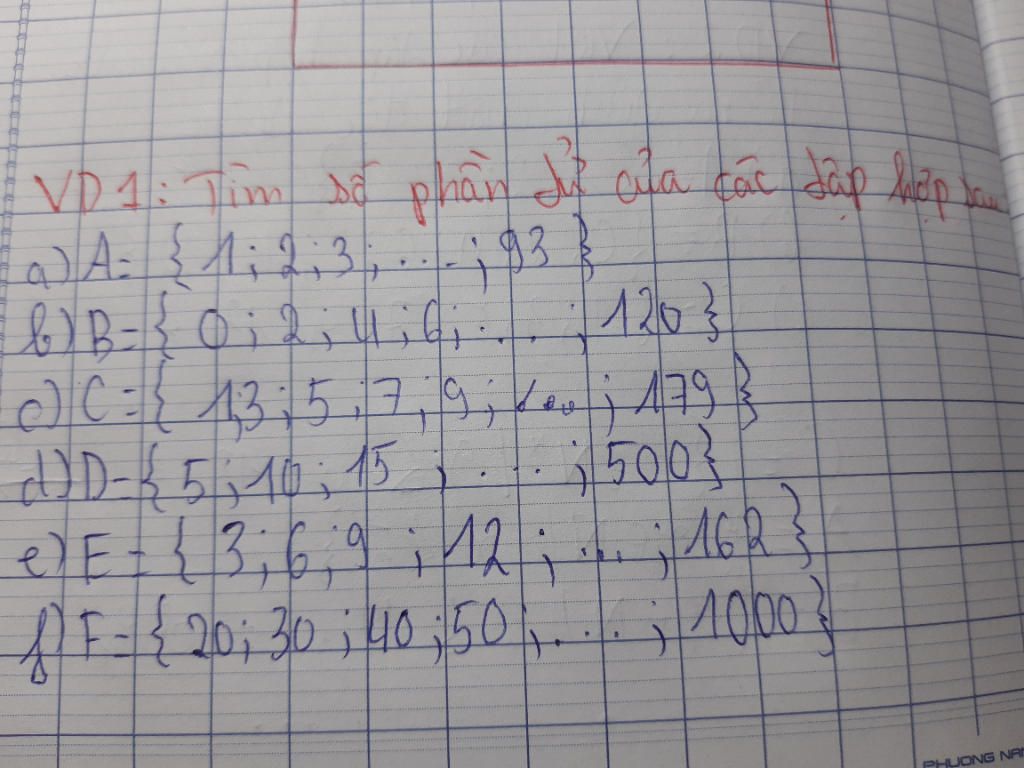 VD1: Tìm số phần tử của các tập hợp sau
a) A = { 1 ; 2 ; 3 ; ... ; 93 }
b) B = { 0 ; 2 ; 4 ; 6 ; ... ; 120 }
c) C = { 1,3 ; 5 ; 7 ; 9 ; ... ; 179 }
d) D = { 5 ; 10 ; 15 ; ... ; 500 }
e) E = { 3 ; 6 ; 9 ; 12 ; ... ; 162 }
f) F = { 20 ; 30 ; 40 ; 50 ; .... ; 1000 }
PHUONG NA